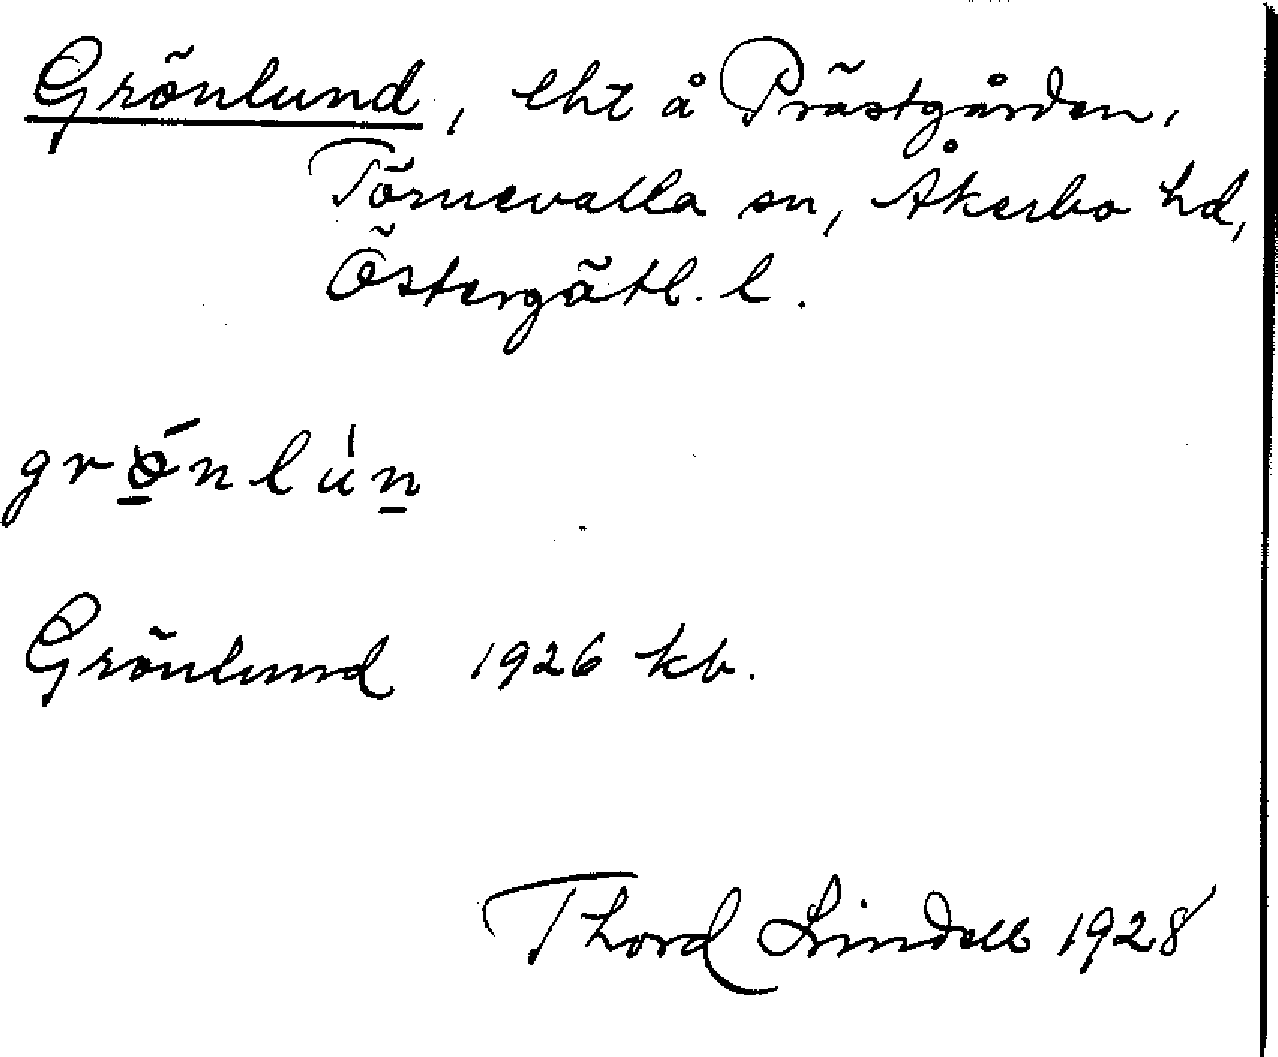 Grönlund, lht å Prästgården,
Törnevalla sn, Åkerbo hd,
Östergötl. l.
grǿnlún
Grönlund 1926 kb.
Thord Lindell 1928